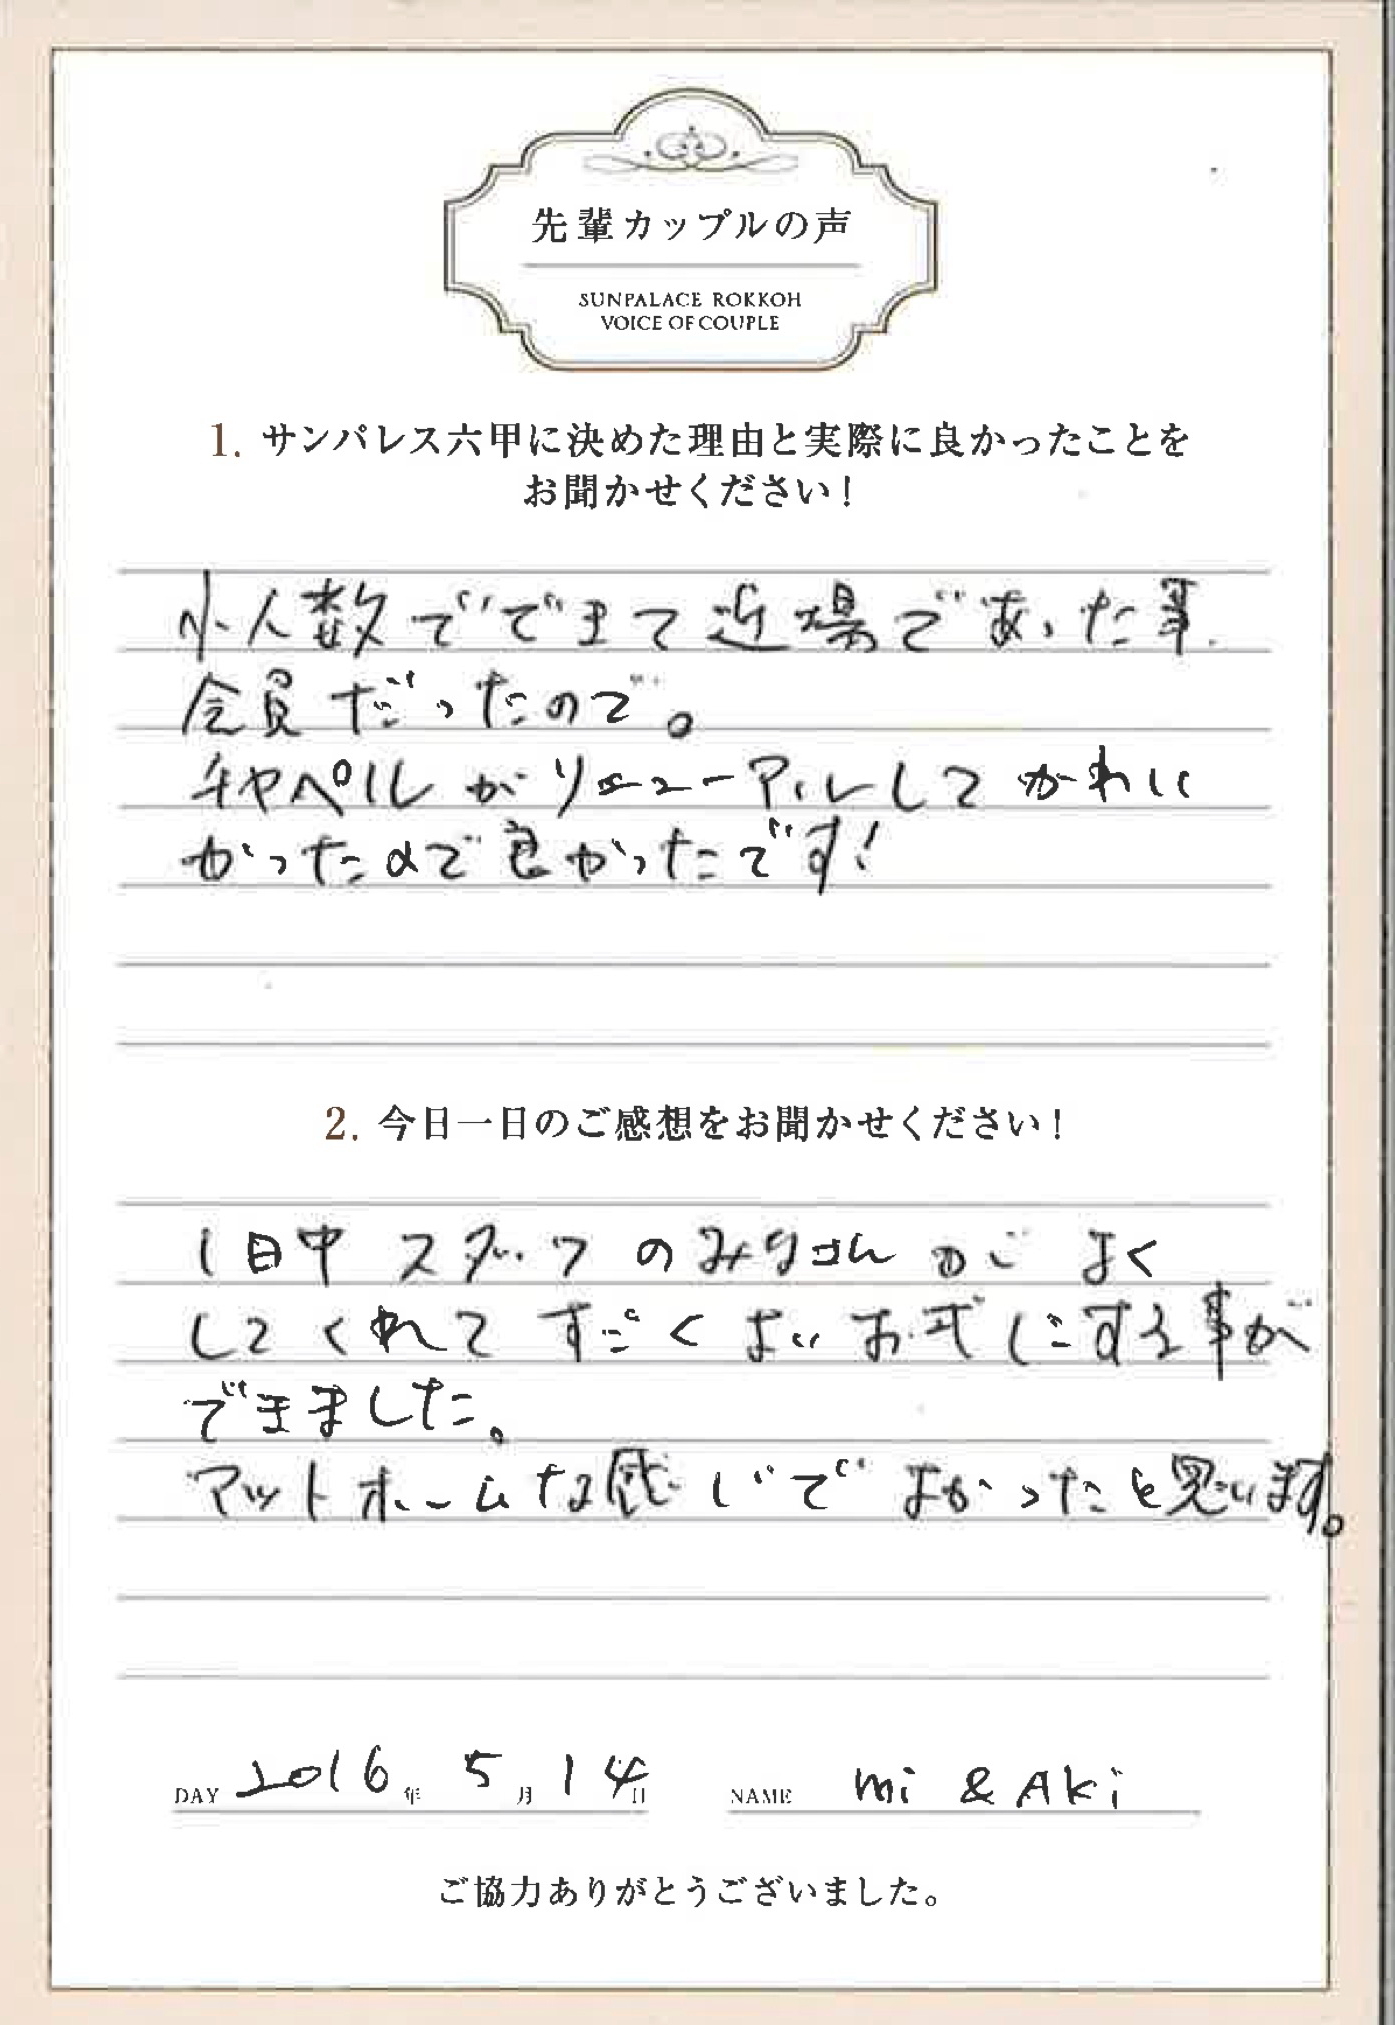 先輩カップルの声
SUNPALACE ROKKOH
VOICE OF COUPLE
1. サンパレス六甲に決めた理由と実際に良かったことを
お聞かせください！
小人数でできて近場であった事.
会員だったので。
チャペルがリニューアルしてかわい
かったので良かったです！
2. 今日一日のご感想をお聞かせください！
1日中スタッフのみなさんがよく
してくれてすごくよいお式にする事が
できました。
アットホームな感じでよかったと思います。
DAY 2016年 5月14日 NAME mi & Aki
ご協力ありがとうございました。